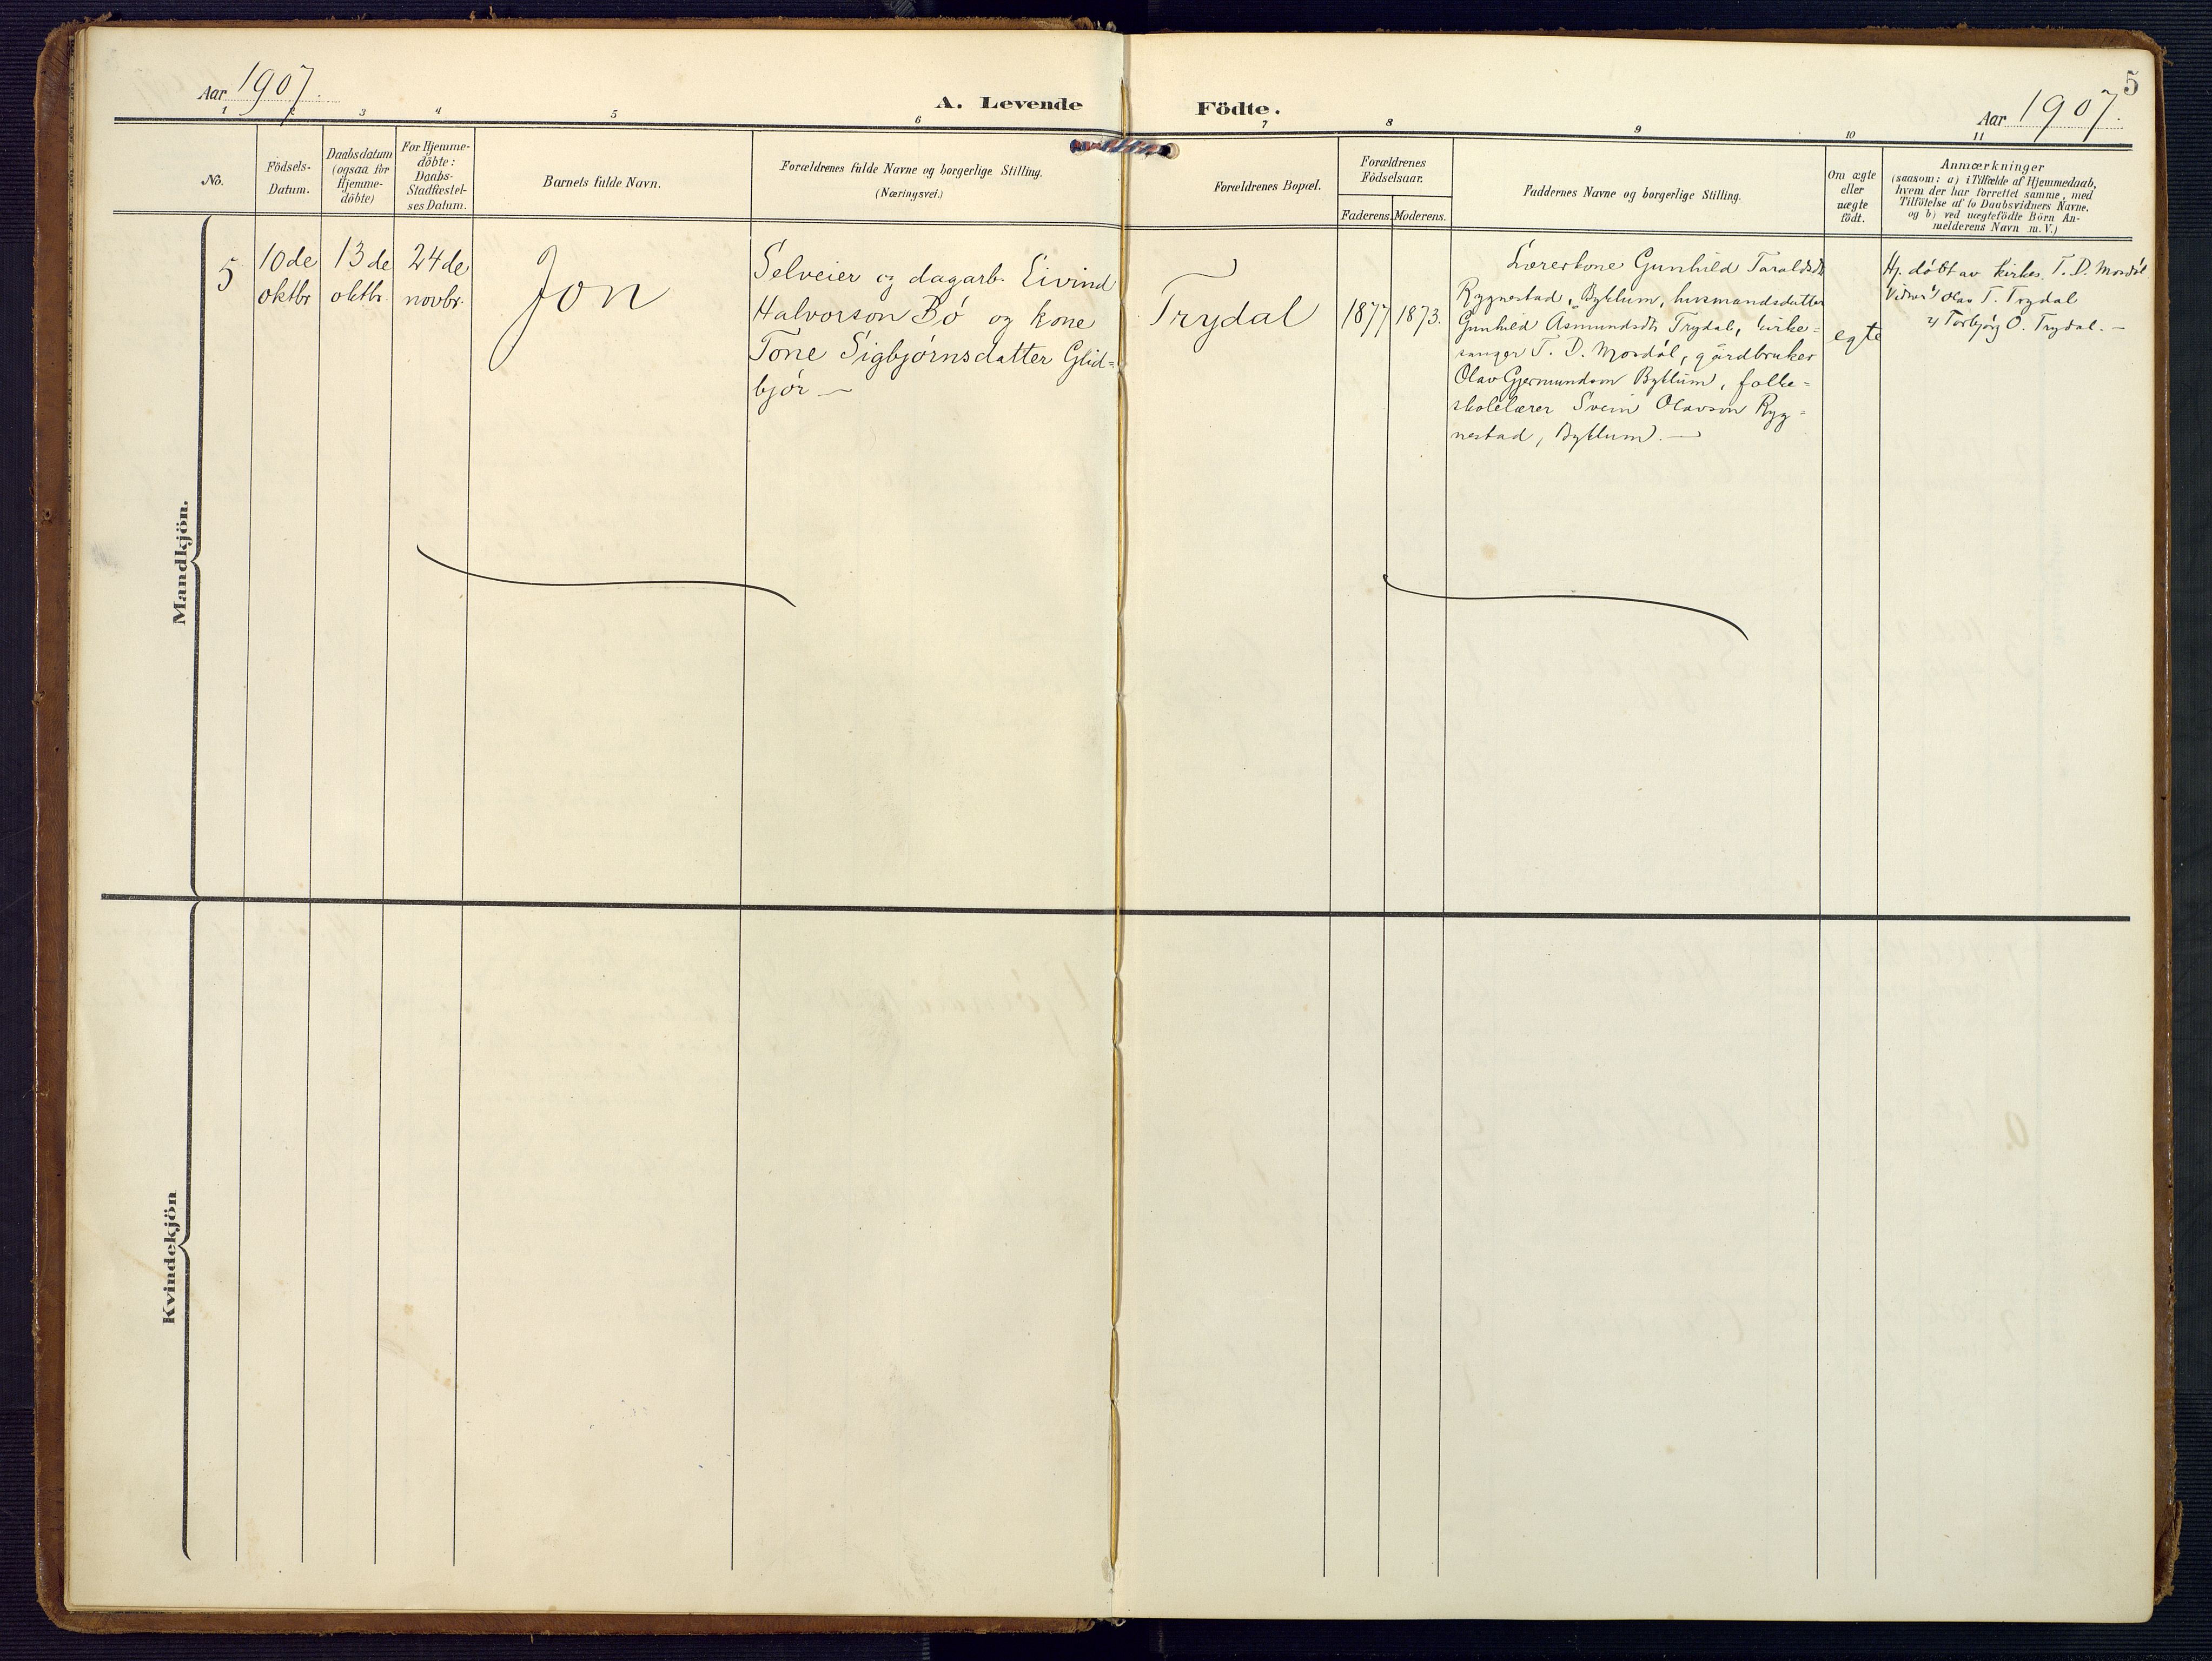 5
Aar 1907.
A. Levende Födte.
Aar 1907.
1 2 3 4 5 6 7 8 9 10 11
No.
Födsels-
Datum.
Daabsdatum
(ogsaa for
Hjemme-
döbte)
For Hjemme-
döbte:
Daabs-
Stadfæstel-
ses Datum.
Barnets fulde Navn.
Forældrenes fulde Navne og borgerlige Stilling.
(Næringsvei.)
Forældrenes Bopæl.
Forældrenes
Födselsaar.
Faderens. Moderens.
Faddernes Navne og borgerlige Stilling.
Om ægte
eller
uægte
födt.
Anmærkninger
(saasom: a) i Tilfælde af Hjemmedaab,
hvem der har forrettet samme, med
Tilföielse af to Daabsvidners Navne.
og b) ved uægtefödte Börn An-
melderens Navn m. V.)
Mandkjön.
5
10de
oktbr
13de
oktbr.
24de
novbr.
Jon
Selveier og dagarb. Eivind
Halvorson Bó og kone
Tone Sigbjórnsdatter Glid=
bjór —
Trydal
1877
1873.
Lærerkone Gunhild Taraldsdt
Rygnestad, Byklum, husmandsdatter
Gunhild Åsmundsdt. Trydal, kirke=
sanger T. D. Mosdól, gårdbruker
Olav Gjermundson Byklum, folke=
skolelærer Svein Olavson Ryg=
nestad, Byklum. —
egte
Hj. dóbt av kirkes. T. D. Mosdól
Vidner: Olav T. Trydal
og Torbjórg O. Trydal. —
Kvindekjön